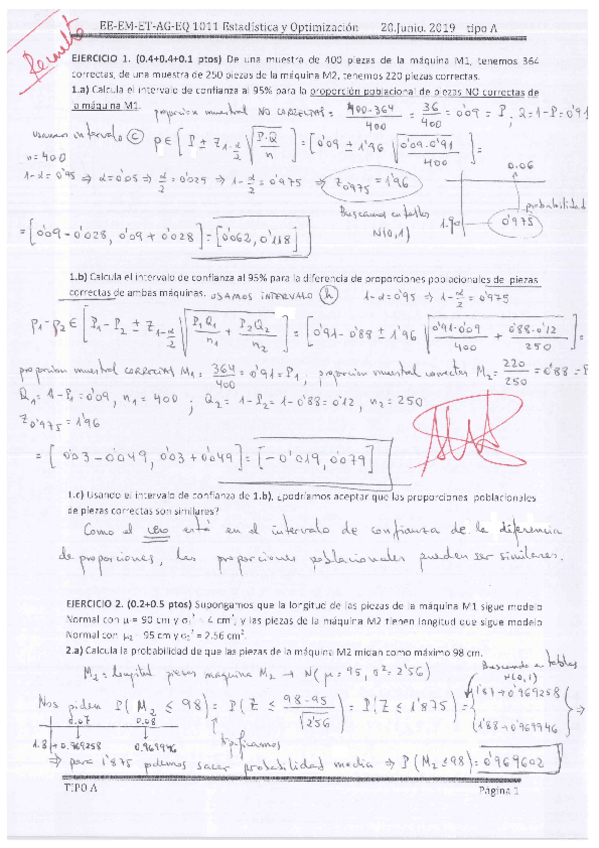 EE-EM-ET-AG-EQ 1011 Estadística y Optimización 20.Junio. 2019 tipo A
Resuelto
EJERCICIO 1. (0.4+0.4+0.1 ptos) De una muestra de 400 piezas de la máquina M1, tenemos 364
correctas, de una muestra de 250 piezas de la máquina M2, tenemos 220 piezas correctas.
1.a) Calcula el intervalo de confianza al 95% para la proporción poblacional de piezas NO correctas de
la máquina M1. proporcion muestral NO CORRECTAS = 400-364/400 = 36/400 = 0'09 = P, Q=1-P=0'91
usamos intervalo (c) p∈[P ± Z1-α/2 √(P·Q/n)] = [0'09 ± 1'96 √(0'09·0'91/400)] =
n=400
1-α=0'95 ⇒ α=0'05 ⇒ α/2=0'025 ⇒ 1-α/2=0'975 ⇒ Z0'975=1'96
0.06
Buscamos en tablas N(0,1)
1.90 0'975 probabilidad
=[0'09-0'028, 0'09+0'028]=[0'062, 0'118]
1.b) Calcula el intervalo de confianza al 95% para la diferencia de proporciones poblacionales de piezas
correctas de ambas máquinas. USAMOS INTERVALO (h) 1-α=0'95 ⇒ 1-α/2=0'975
p1-p2 ∈ [P1-P2 ± Z1-α/2 √(P1Q1/n1 + P2Q2/n2)] = [0'91-0'88 ± 1'96 √(0'91·0'09/400 + 0'88·0'12/250)] =
proporcion muestral correctas M1 = 364/400 = 0'91=P1, proporcion muestral correctas M2 = 220/250 = 0'88=P
Q1=1-P1=0'09, n1=400; Q2=1-P2=1-0'88=0'12, n2=250
Z0'975=1'96
= [0'03-0'049, 0'03+0'049]=[-0'019, 0'079]
1.c) Usando el intervalo de confianza de 1.b), ¿podríamos aceptar que las proporciones poblacionales
de piezas correctas son similares?
Como el cero está en el intervalo de confianza de la diferencia
de proporciones, las proporciones poblacionales pueden ser similares.
EJERCICIO 2. (0.2+0.5 ptos) Supongamos que la longitud de las piezas de la máquina M1 sigue modelo
Normal con μ = 90 cm y σ1² = 4 cm², y las piezas de la máquina M2 tienen longitud que sigue modelo
Normal con μ2 = 95 cm y σ2² = 2.56 cm².
2.a) Calcula la probabilidad de que las piezas de la máquina M2 midan como máximo 98 cm.
M2=longitud piezas maquina M2 → N(μ=95, σ²=2'56)
Buscando en tablas N(0,1)
Nos piden P(M2 ≤ 98) = P(Z ≤ 98-95/√2'56) = P(Z ≤ 1'875) = {1'87→0'969258
1'88→0'969946} ⇒
0.07 0.08
1.8→0.969258 0.969946
tipificamos
⇒ para 1'875 podemos sacar probabilidad media ⇒ P(M2≤98)=0'969602
TIPO A Página 1